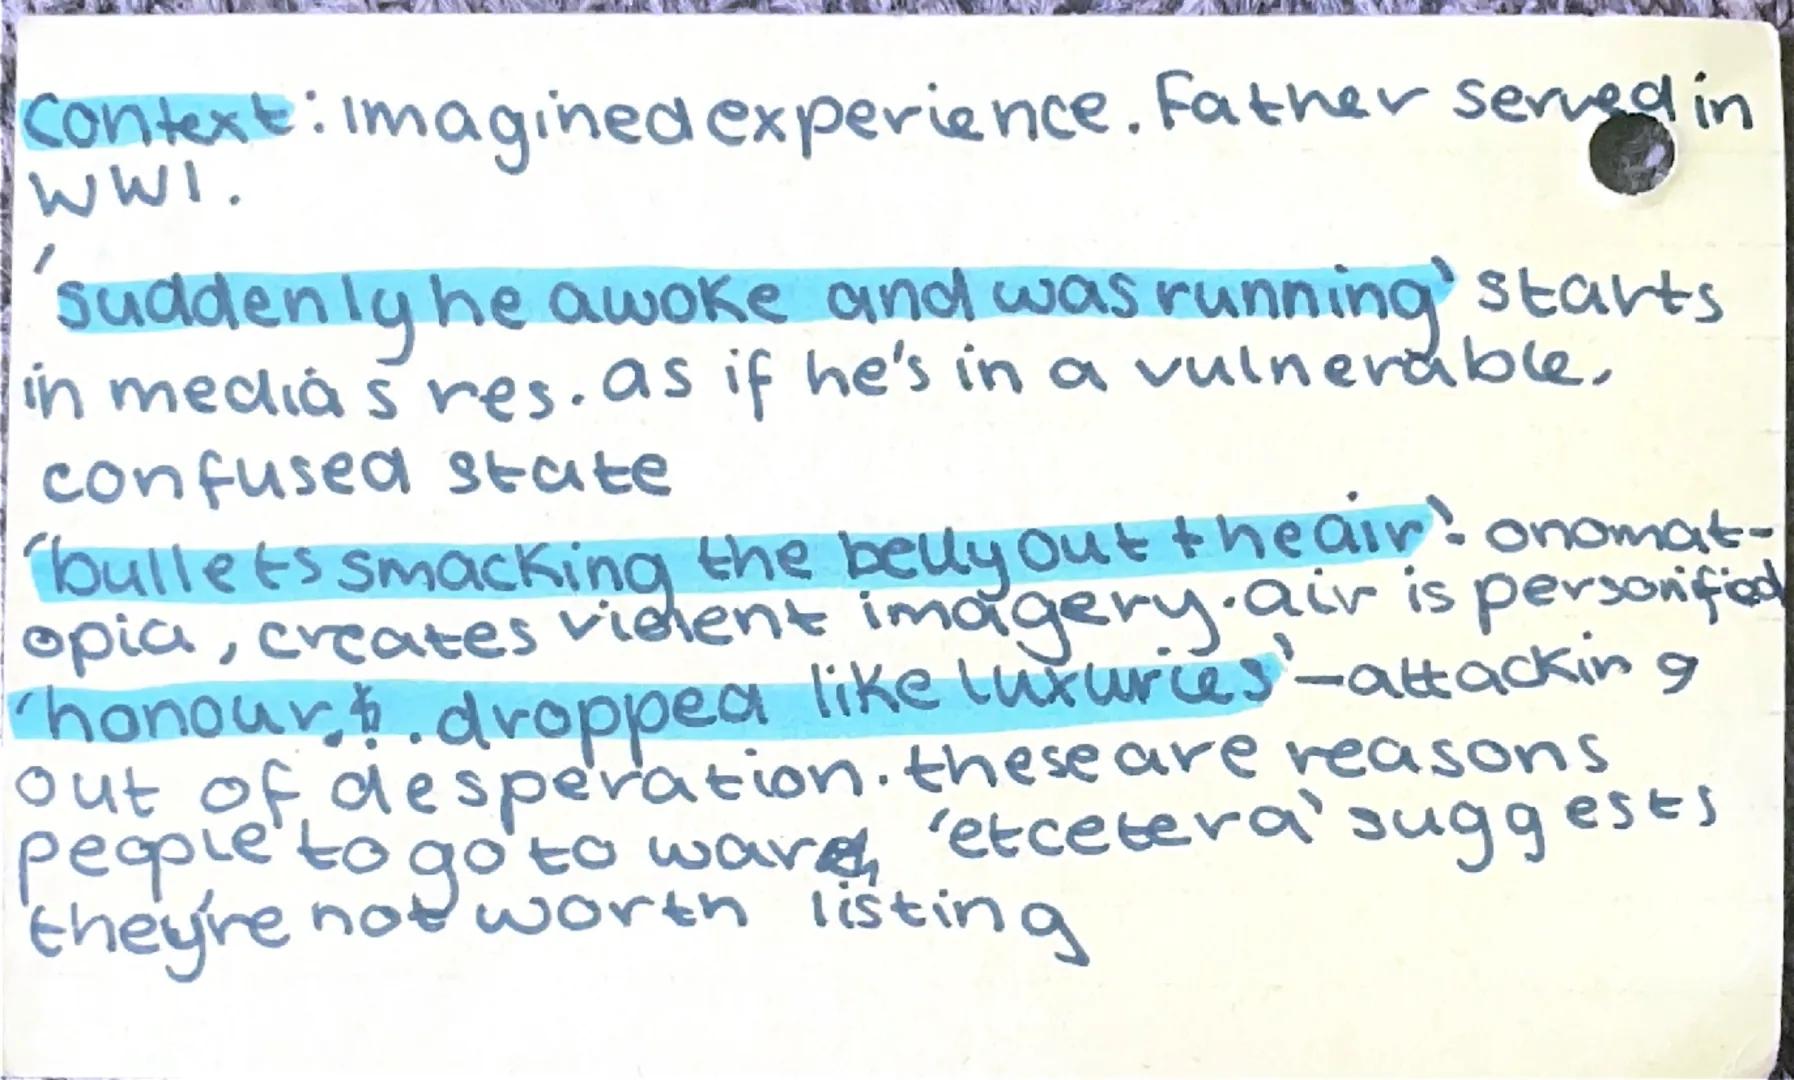 Context: imagined experience. Father served in
WW1.
'suddenly he awoke and was running' starts
in medias res. as if he's in a vulnerable,
confused state
'bullets smacking the belly out the air': onomat-
opia, creates violent imagery. air is personified
'honour, .. dropped like luxuries' - attacking
out of desperation. these are reasons
people to go to war, 'etcetera' suggests
they're not worth listing